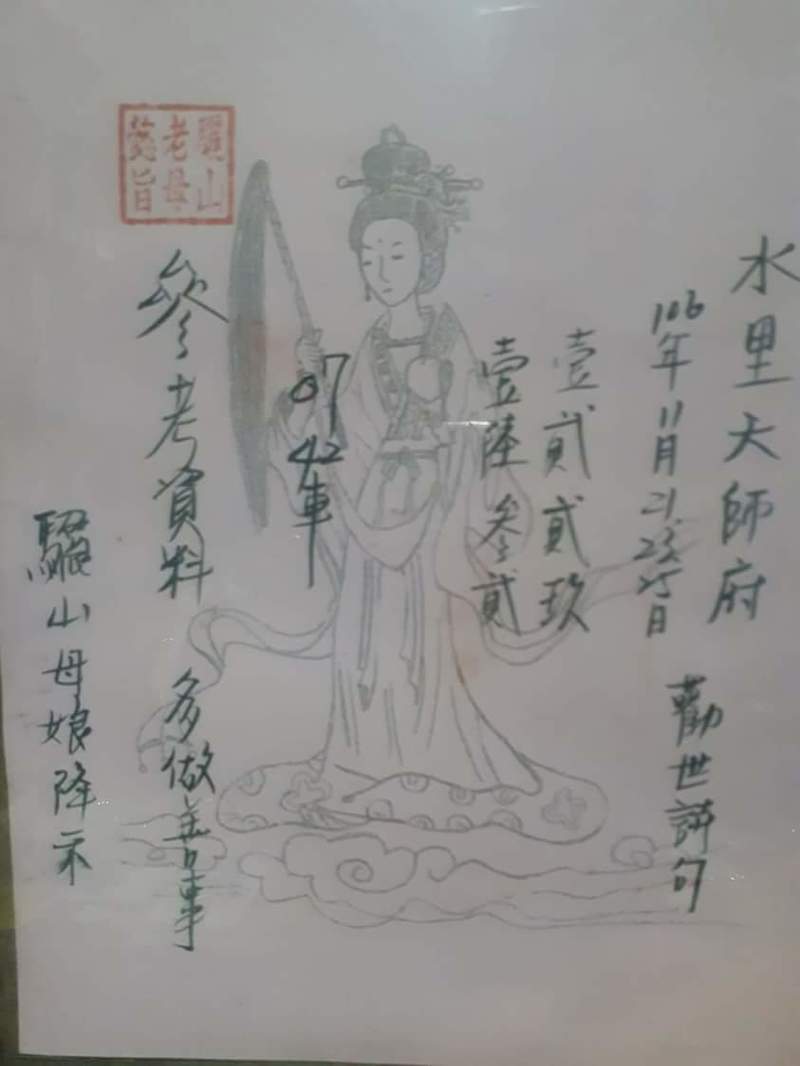 水里大師府
106年11月21.23.25日
勸世詩句
壹貳貳玖
壹陸參貳
07
42車
參考資料
多做善事
驪山母娘降示
驪山
老母
懿旨